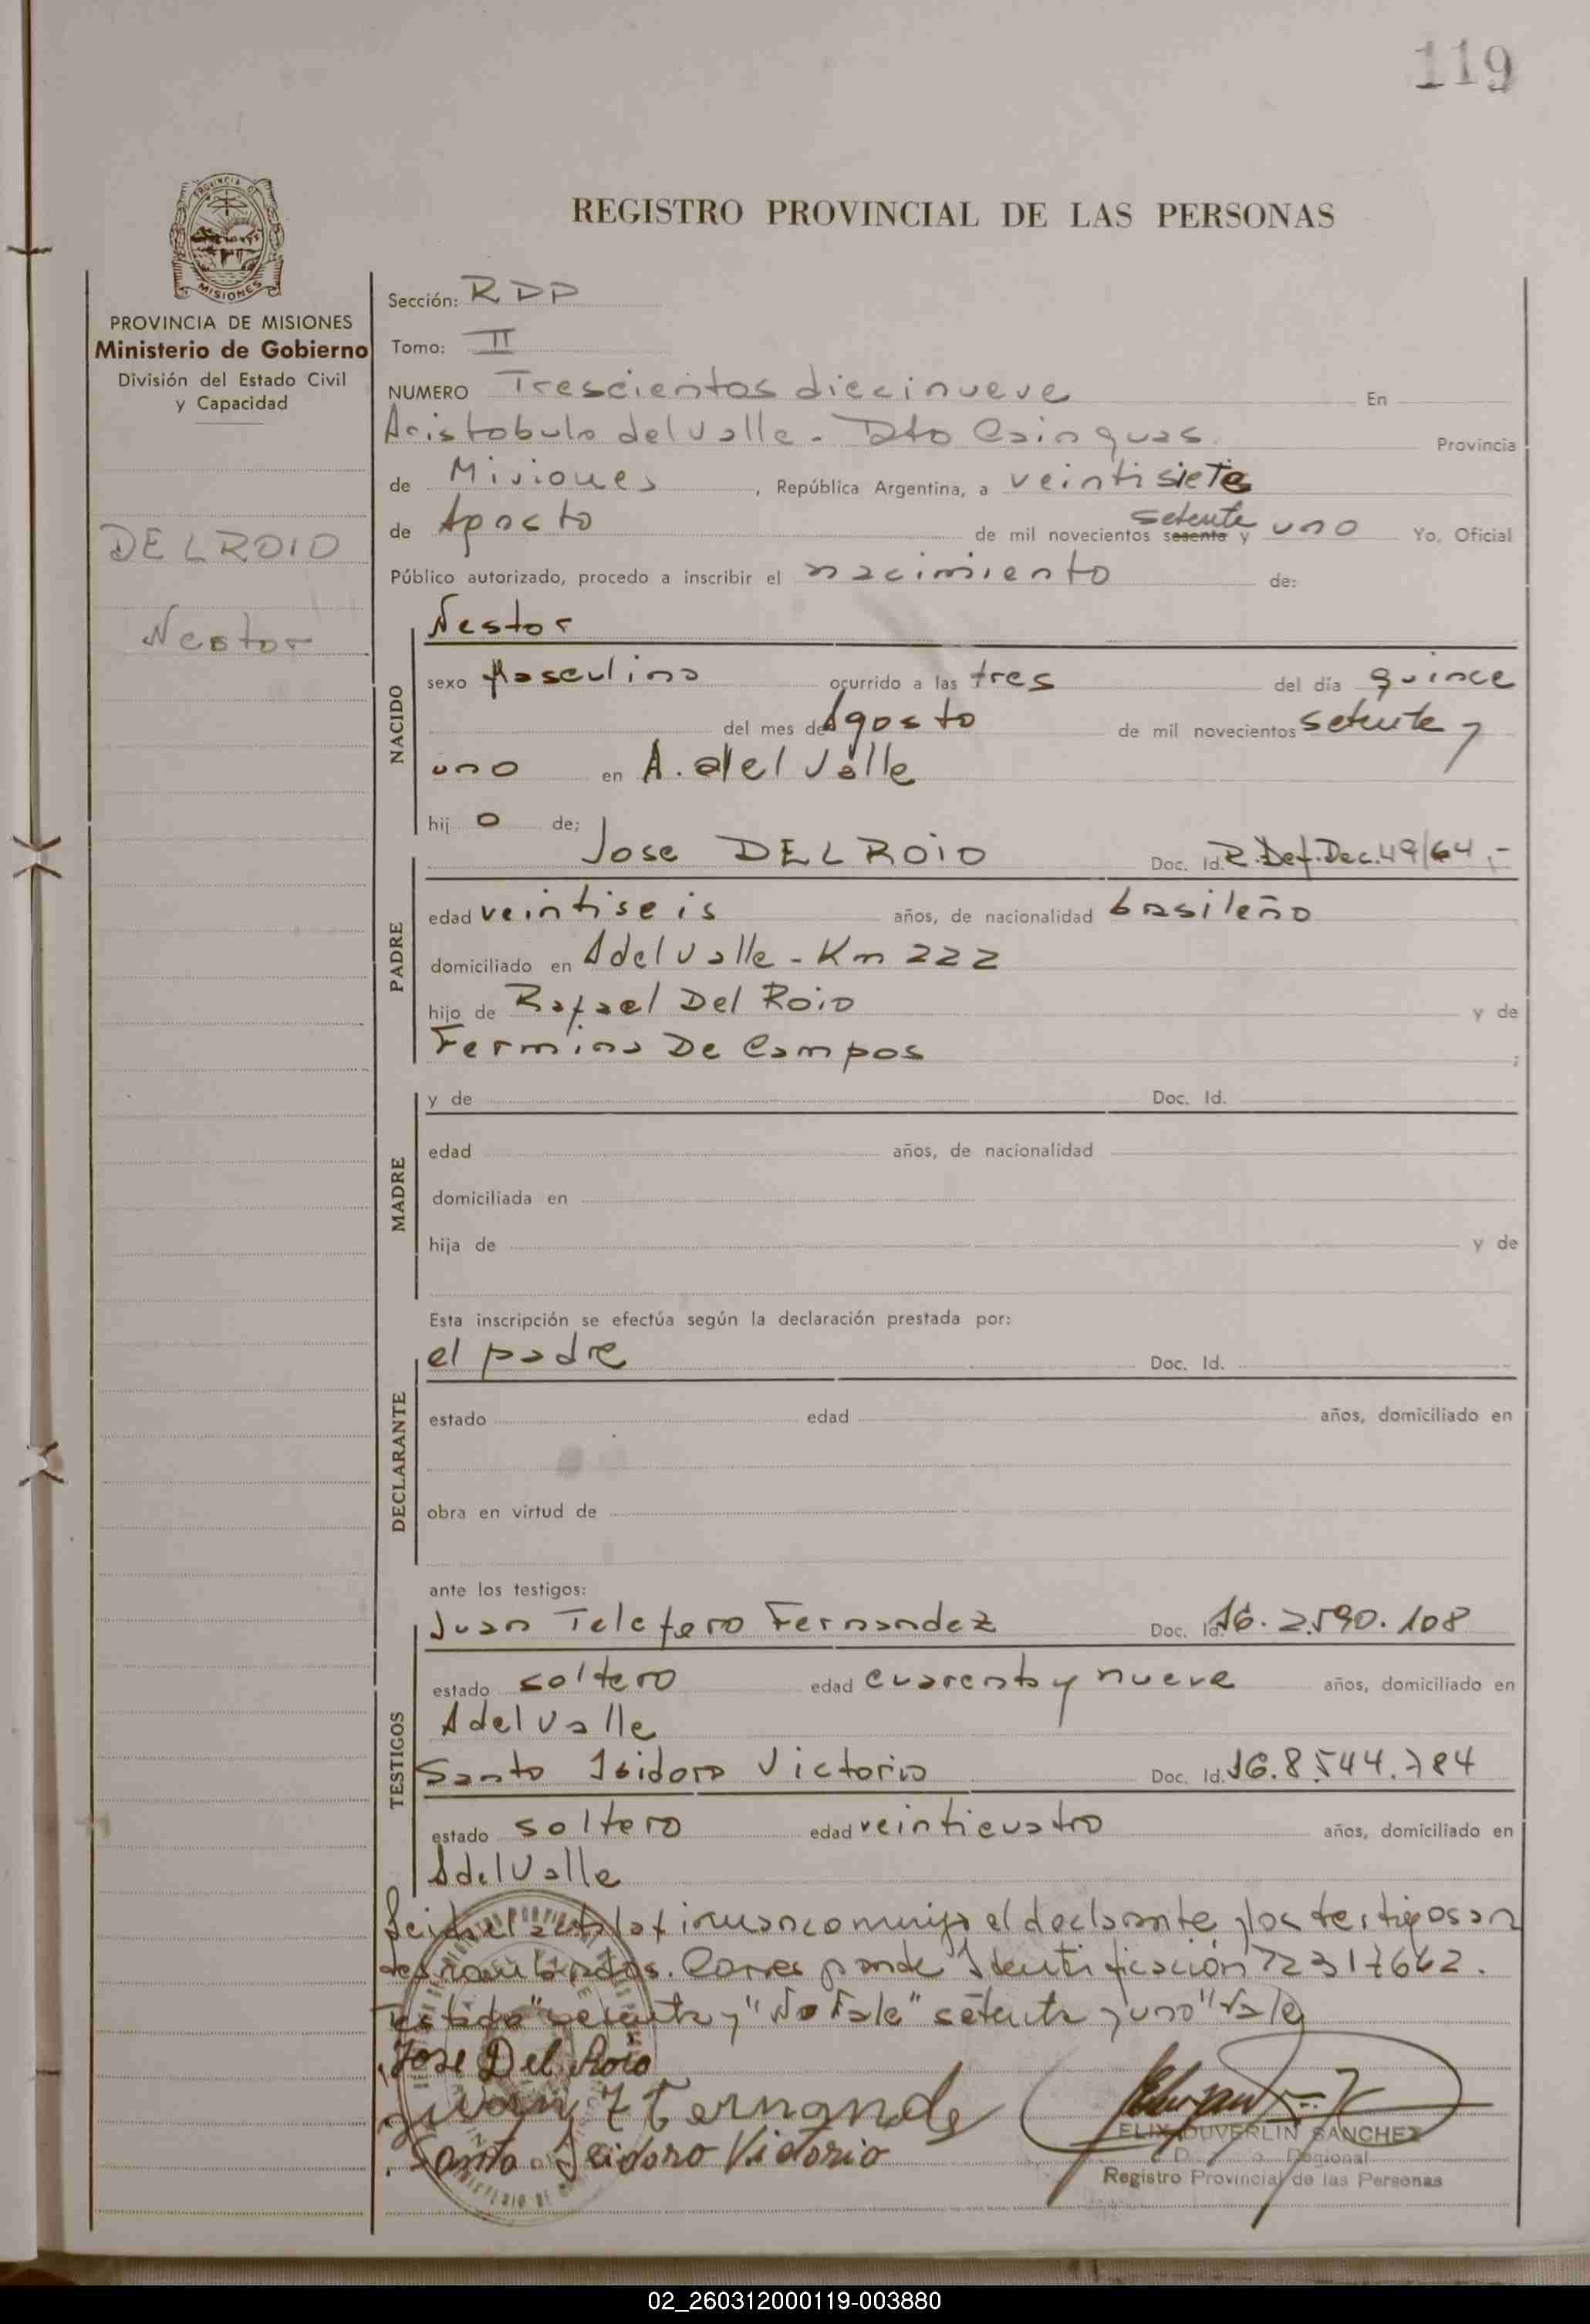 119
REGISTRO PROVINCIAL DE LAS PERSONAS
MISIONES
PROVINCIA DE MISIONES
Ministerio de Gobierno
División del Estado Civil
y Capacidad
DELROIO
Nestor
Sección: RDP
Tomo: II
NUMERO Trescientos diecinueve En
Aristobulo del Valle - Dto Cainguas Provincia
de Misiones, República Argentina, a veintisiete
de Agosto de mil novecientos sesenta setenta y uno Yo, Oficial
Público autorizado, procedo a inscribir el nacimiento de:
NACIDO
Nestor
sexo Masculino ocurrido a las tres del día quince
del mes de Agosto de mil novecientos setenta y
uno en A. del Valle
hij o de;
PADRE
Jose DELROIO Doc. Id. R.Def.Dec.49/64.-
edad veintiseis años, de nacionalidad brasileño
domiciliado en A del Valle - Km 222
hijo de Rafael Del Roio y de
Fermina De Campos ;
MADRE
y de Doc. Id.
edad años, de nacionalidad
domiciliada en
hija de y de
Esta inscripción se efectúa según la declaración prestada por:
DECLARANTE
el padre Doc. Id.
estado edad años, domiciliado en
obra en virtud de
ante los testigos:
TESTIGOS
Juan Telefero Fernandez Doc. Id. 2.590.108
estado soltero edad cuarenta y nueve años, domiciliado en
A del Valle
Santo Isidoro Victorio Doc. Id. 8.544.784
estado soltero edad veinticuatro años, domiciliado en
A del Valle
Leida el acta la firman conmigo el declarante y los testigos
Corresponde Identificación
Testado "setenta y" No Vale" setenta y uno" Vale
Jose Del Roio
Juan T Fernande
Santo Isidoro Victorio
ELIX DUVERLIN SANCHEZ
Regional
Registro Provincial de las Personas
02_260312000119-003880